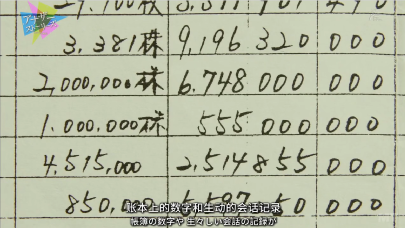 3,381株 9,196 320 000
2,000,000株 6.748 000 000
1.000,000株 555 000 000
4.515,000 2.514855 000
850,000 000
账本上的数字和生动的会话记录
帳簿の数字や 生々しい会話の記録が